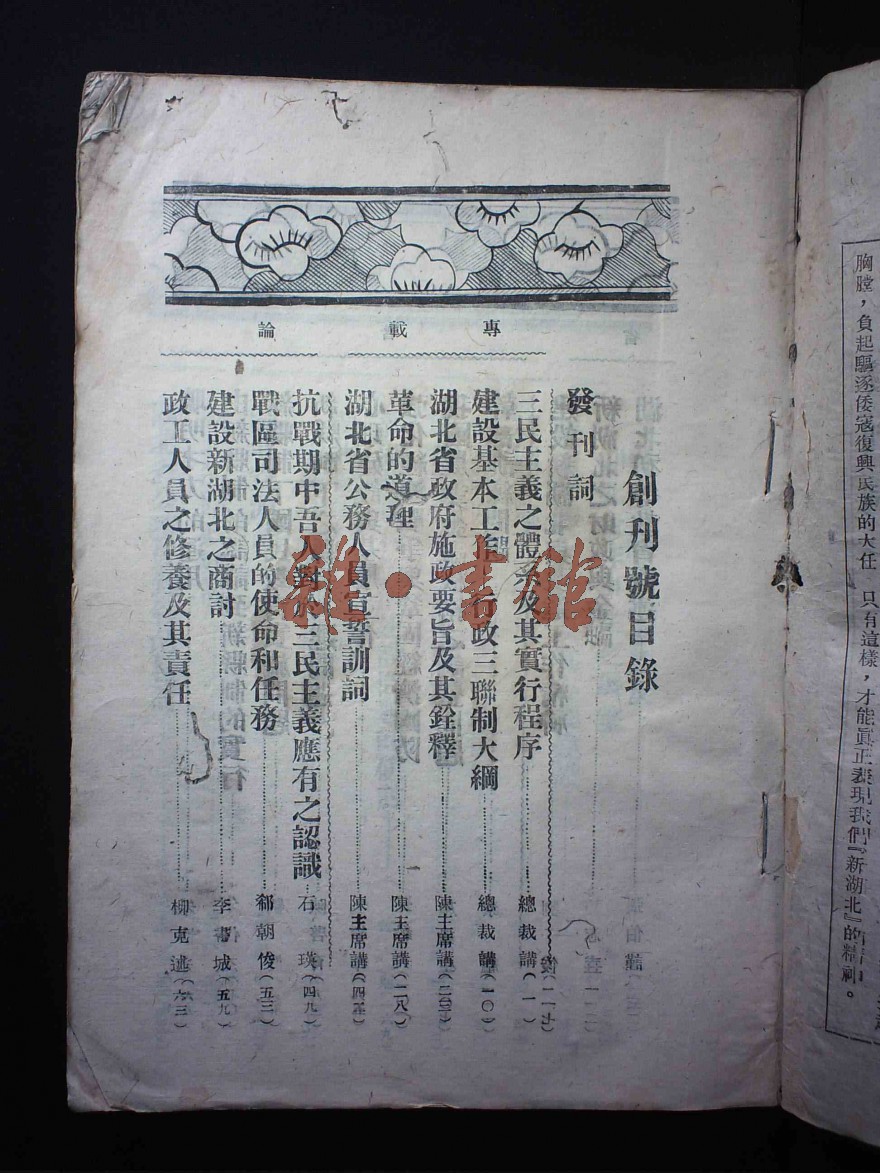 創刊號目錄
發刊詞
專載
三民主義之體系及其實行程序 總裁講（一）
建設基本工作 行政三聯制大綱 總裁講（一〇）
湖北省政府施政要旨及其銓釋 陳主席講
革命的道理 陳主席講（二八）
湖北省公務人員宣誓訓詞 陳主席講
論
抗戰期中吾人對於三民主義應有之認識 石瑛（四九）
戰區司法人員的使命和任務 郗朝俊（五三）
建設新湖北之商討 李書城（五九）
政工人員之修養及其責任 柳克述（六三）
胸膛，負起驅逐倭寇復興民族的大任 只有這樣，才能眞正表現我們『新湖北』的精神。
雜·書館